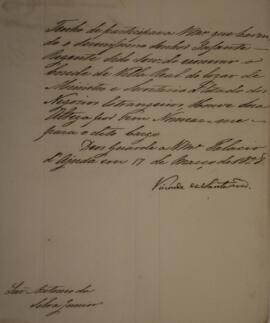 Tenho de participar a V Mce que haven
do o Serenissimo Senhor Infante
Regente sido servido exonerar o
Conde de Villa Real do lugar de
Ministro e Secretario d'Estado dos
Negocios Estrangeiros, Houve Sua
Alteza por bem Nomear-me
para o dito
Deos Guarde a V Mce Palacio
d'Ajuda em 17 de Março de 1828
Visconde de Santarem
Antonio da
Silva Junior